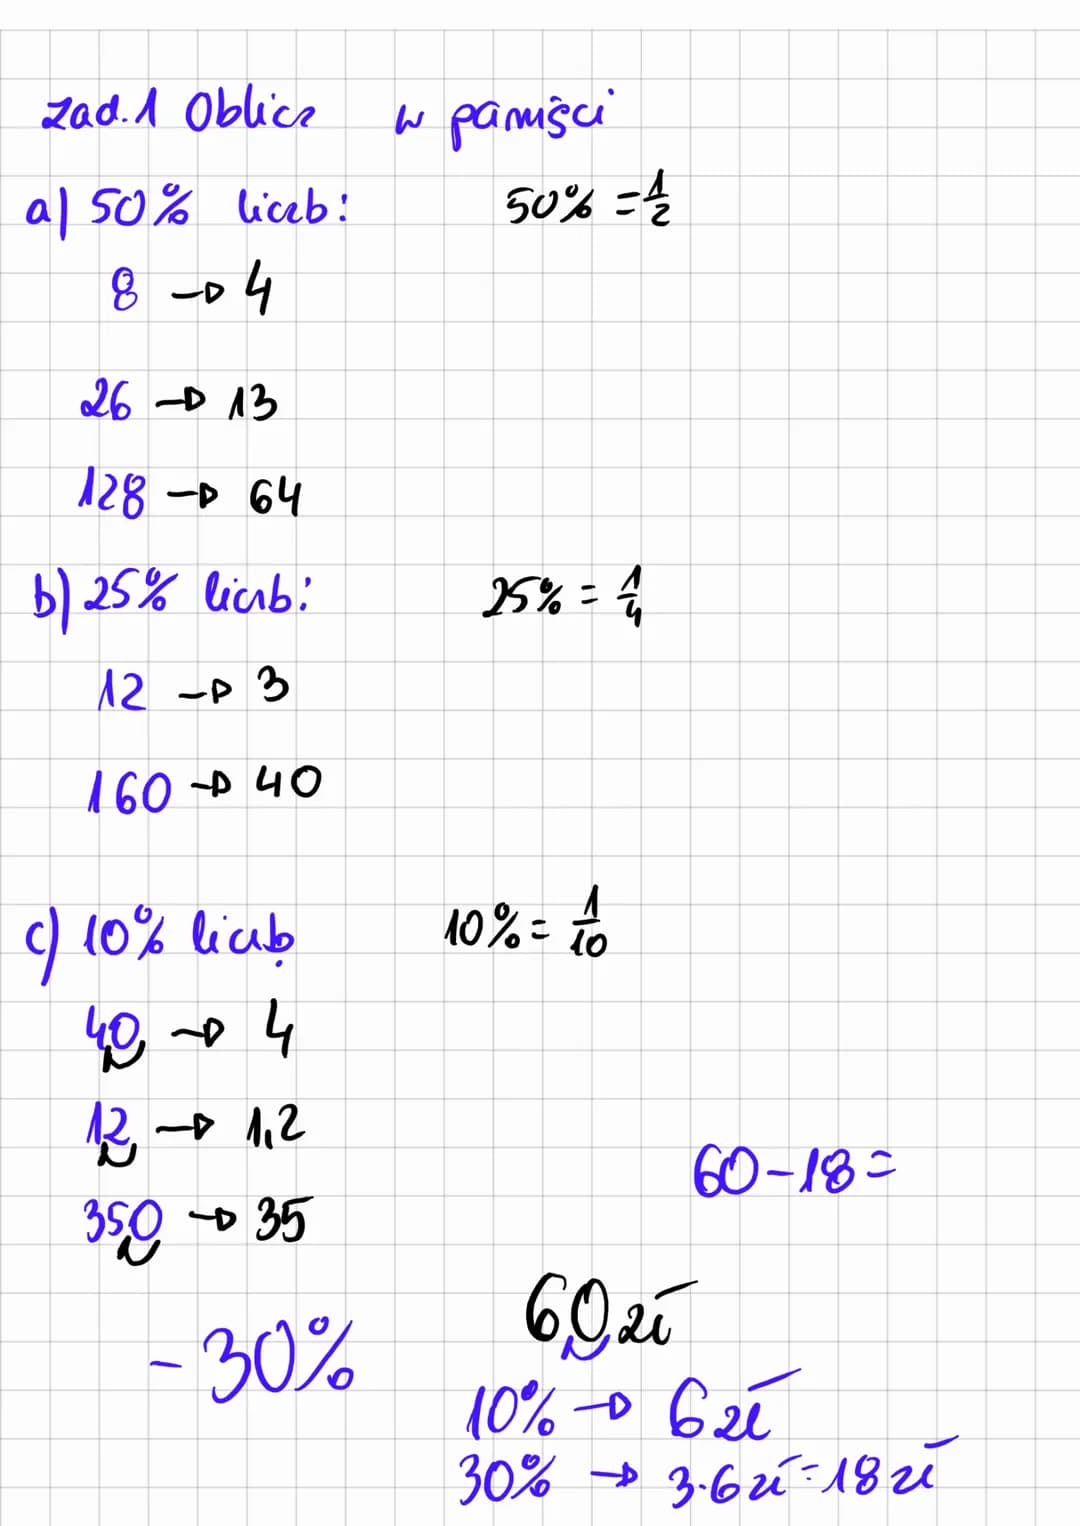 zad.1 Oblicz w pamięci
a) 50% liczb: 50% = 1/2
8 → 4
26 → 13
128 → 64
b) 25% liczb: 25% = 1/4
12 → 3
160 → 40
c) 10% liczb 10% = 1/10
40 → 4
12 → 1,2
60-18=
350 → 35
60 zł
- 30%
10% → 6 zł
30% → 3·6 zł = 18 zł